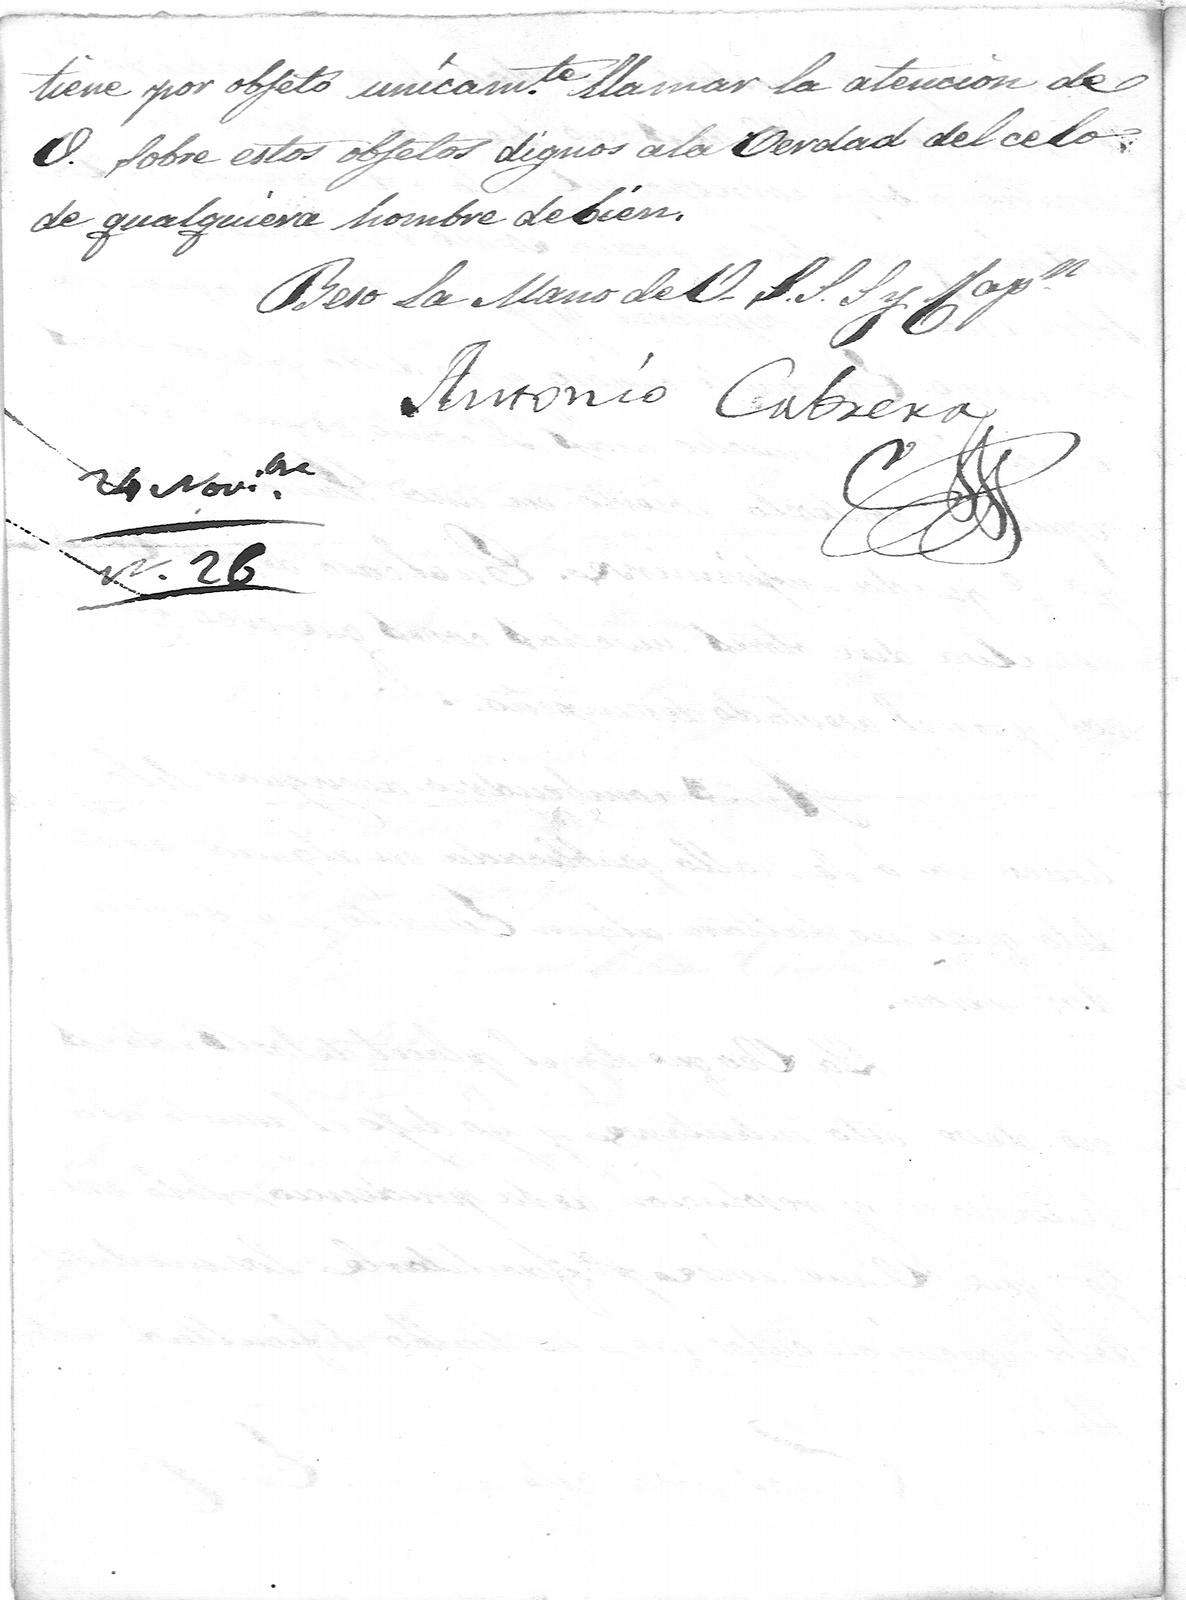 tiene por objeto unicam.te llamar la atencion de
V. sobre estos objetos dignos a la Verdad del celo
de qualquiera hombre de bien.
Beso La Mano de V. S.S.S y Capn
Antonio Cabrera
24 Novi.bre
N. 26